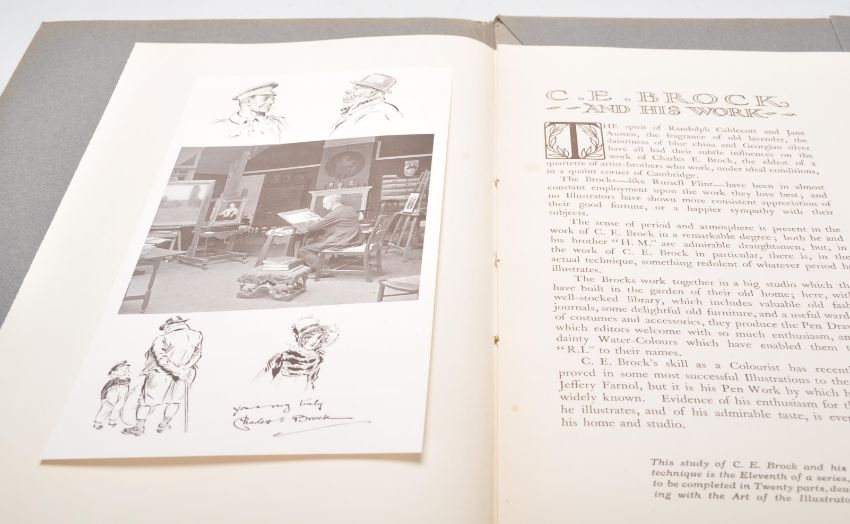 yours very truly
Charles E Brock
C. E. BROCK
AND HIS WORK
THE spirit of Randolph Caldecott and Jane
Austen, the fragrance of old lavender, the
daintiness of blue china and Georgian silver
have all had their subtle influences on the
work of Charles E. Brock, the eldest of a
quartette of artist-brothers who work, under ideal conditions,
in a quaint corner of Cambridge.
The Brocks—like Russell Flint—have been in almost
constant employment upon the work they love best; and
no Illustrators have shown more consistent appreciation of
their good fortune, or a happier sympathy with their
subjects.
The sense of period and atmosphere is present in the
work of C. E. Brock in a remarkable degree; both he and
his brother "H. M." are admirable draughtsmen, but, in
the work of C. E. Brock in particular, there is, in the
actual technique, something redolent of whatever period he
illustrates.
The Brocks work together in a big studio which th
have built in the garden of their old home; here, with
well-stocked library, which includes valuable old fash
journals, some delightful old furniture, and a useful ward
of costumes and accessories, they produce the Pen Draw
which editors welcome with so much enthusiasm, an
dainty Water-Colours which have enabled them
"R.I." to their names.
C. E. Brock's skill as a Colourist has recent
proved in some most successful Illustrations to the
Jeffery Farnol, but it is his Pen Work by which h
widely known. Evidence of his enthusiasm for th
he illustrates, and of his admirable taste, is ever
his home and studio.
This study of C. E. Brock and his
technique is the Eleventh of a series,
to be completed in Twenty parts, deal
ing with the Art of the Illustrato